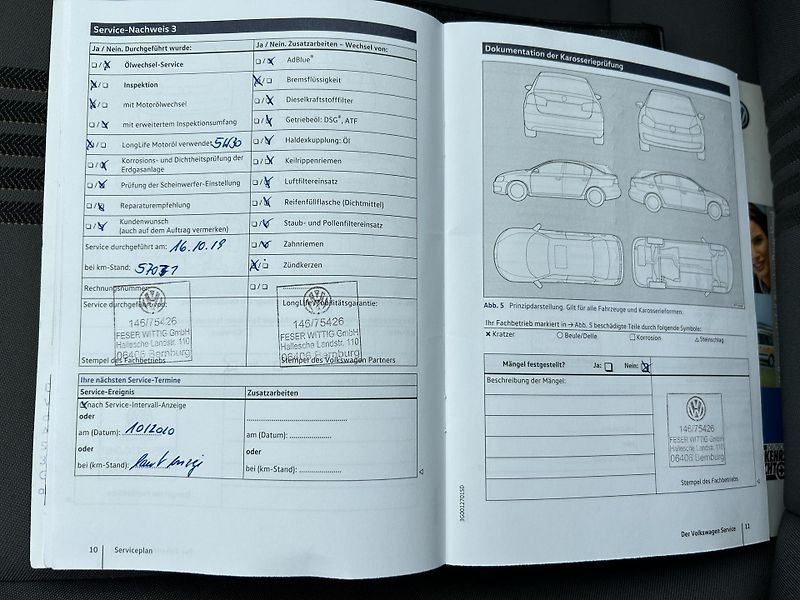 Service-Nachweis 3
Ja / Nein. Durchgeführt wurde:
Ölwechsel-Service
Inspektion
mit Motorölwechsel
mit erweitertem Inspektionsumfang
LongLife Motoröl verwendet 5W30
Korrosions- und Dichtheitsprüfung der
Erdgasanlage
Prüfung der Scheinwerfer-Einstellung
Reparaturempfehlung
Kundenwunsch
(auch auf dem Auftrag vermerken)
Service durchgeführt am: 16.10.19
bei km-Stand:
Rechnungsnummer:
Service durchgeführt von:
146/75426
FESER WITTIG GmbH
Hallesche Landstr. 110
06406 Bernburg
Stempel des Fachbetriebs
Ja / Nein. Zusatzarbeiten – Wechsel von:
AdBlue®
Bremsflüssigkeit
Dieselkraftstofffilter
Getriebeöl: DSG®, ATF
Haldexkupplung: Öl
Keilrippenriemen
Luftfiltereinsatz
Reifenfüllflasche (Dichtmittel)
Staub- und Pollenfiltereinsatz
Zahnriemen
Zündkerzen
LongLife Mobilitätsgarantie:
146/75426
FESER WITTIG GmbH
Hallesche Landstr. 110
06406 Bernburg
Stempel des Volkswagen Partners
Ihre nächsten Service-Termine
Service-Ereignis
nach Service-Intervall-Anzeige
oder
am (Datum): 10/2020
oder
bei (km-Stand):
Zusatzarbeiten
am (Datum):
oder
bei (km-Stand):
10
Serviceplan
Dokumentation der Karosserieprüfung
Abb. 5 Prinzipdarstellung. Gilt für alle Fahrzeuge und Karosserieformen.
Ihr Fachbetrieb markiert in → Abb. 5 beschädigte Teile durch folgende Symbole:
× Kratzer ○ Beule/Delle □ Korrosion △ Steinschlag
Mängel festgestellt? Ja: Nein:
Beschreibung der Mängel:
146/75426
FESER WITTIG GmbH
Hallesche Landstr. 110
06406 Bernburg
Stempel des Fachbetriebs
3G0012701SD
Der Volkswagen Service
11